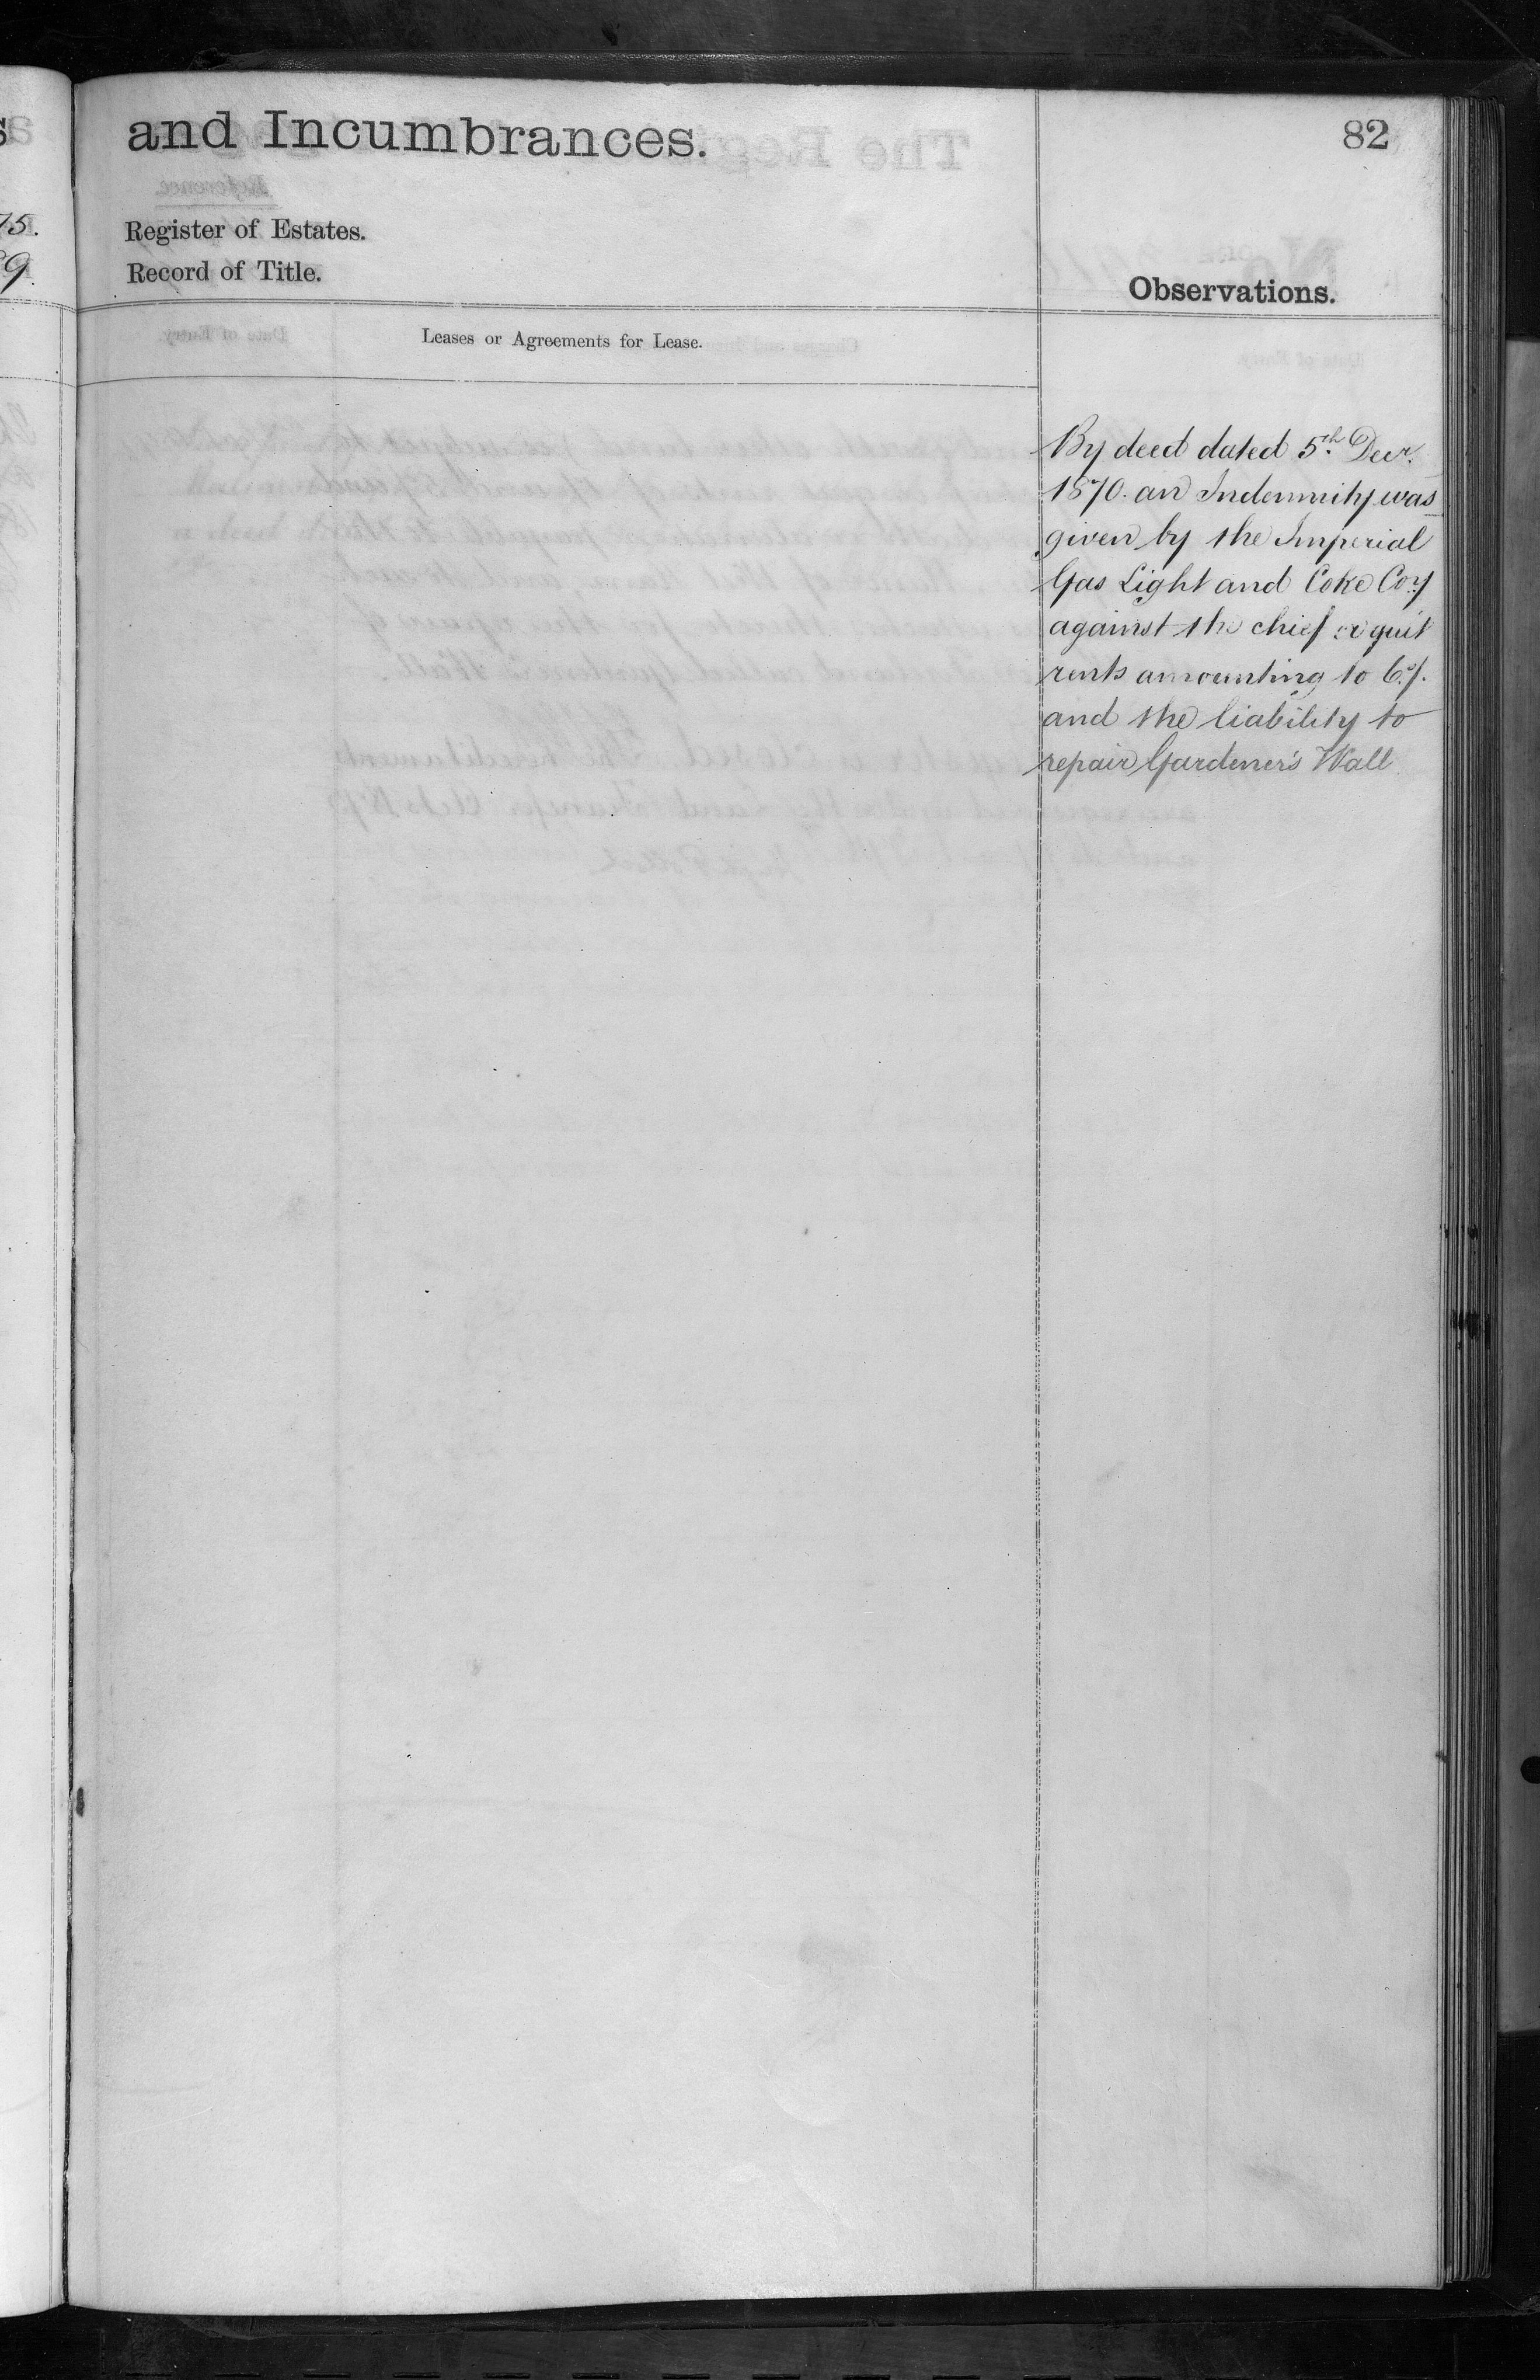 and Incumbrances.
82
Register of Estates.
Record of Title.
Observations.
Leases or Agreements for Lease.
By deed dated 5th Decr.
1870. an Indemnity was
given by the Imperial
Gas Light and Coke Coy.
against the chief or quit
rents amounting to
and the liability to
repair Gardener's Wall